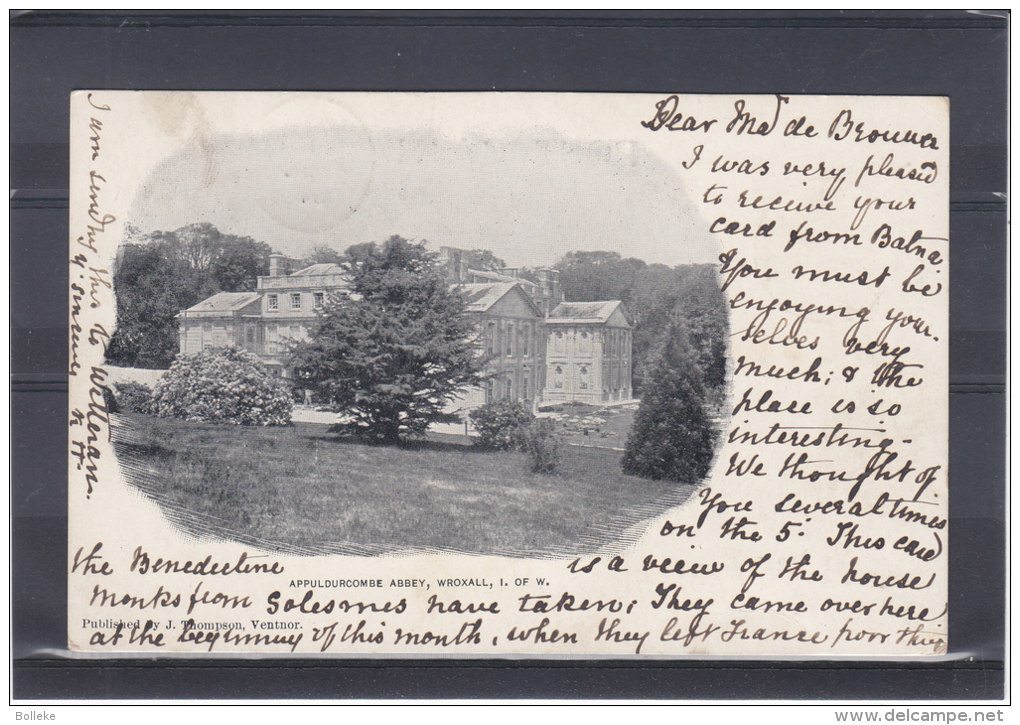 Dear Md de Brouwer
I was very pleased
to receive your
card from Batna
You must be
enjoying your-
selves very
much; & the
place is so
interesting-
We thought of
You several times
on the 5. This card
is a view of the house
the Benedictine
Monks from Solesmes have taken; They came over here
at the beginning of this month, when they left France poor things
I am sending this to Wetteran.
Y. sincerely
APPULDURCOMBE ABBEY, WROXALL, I. OF W.
Published by J. Thompson, Ventnor.
Bolleke
www.delcampe.net